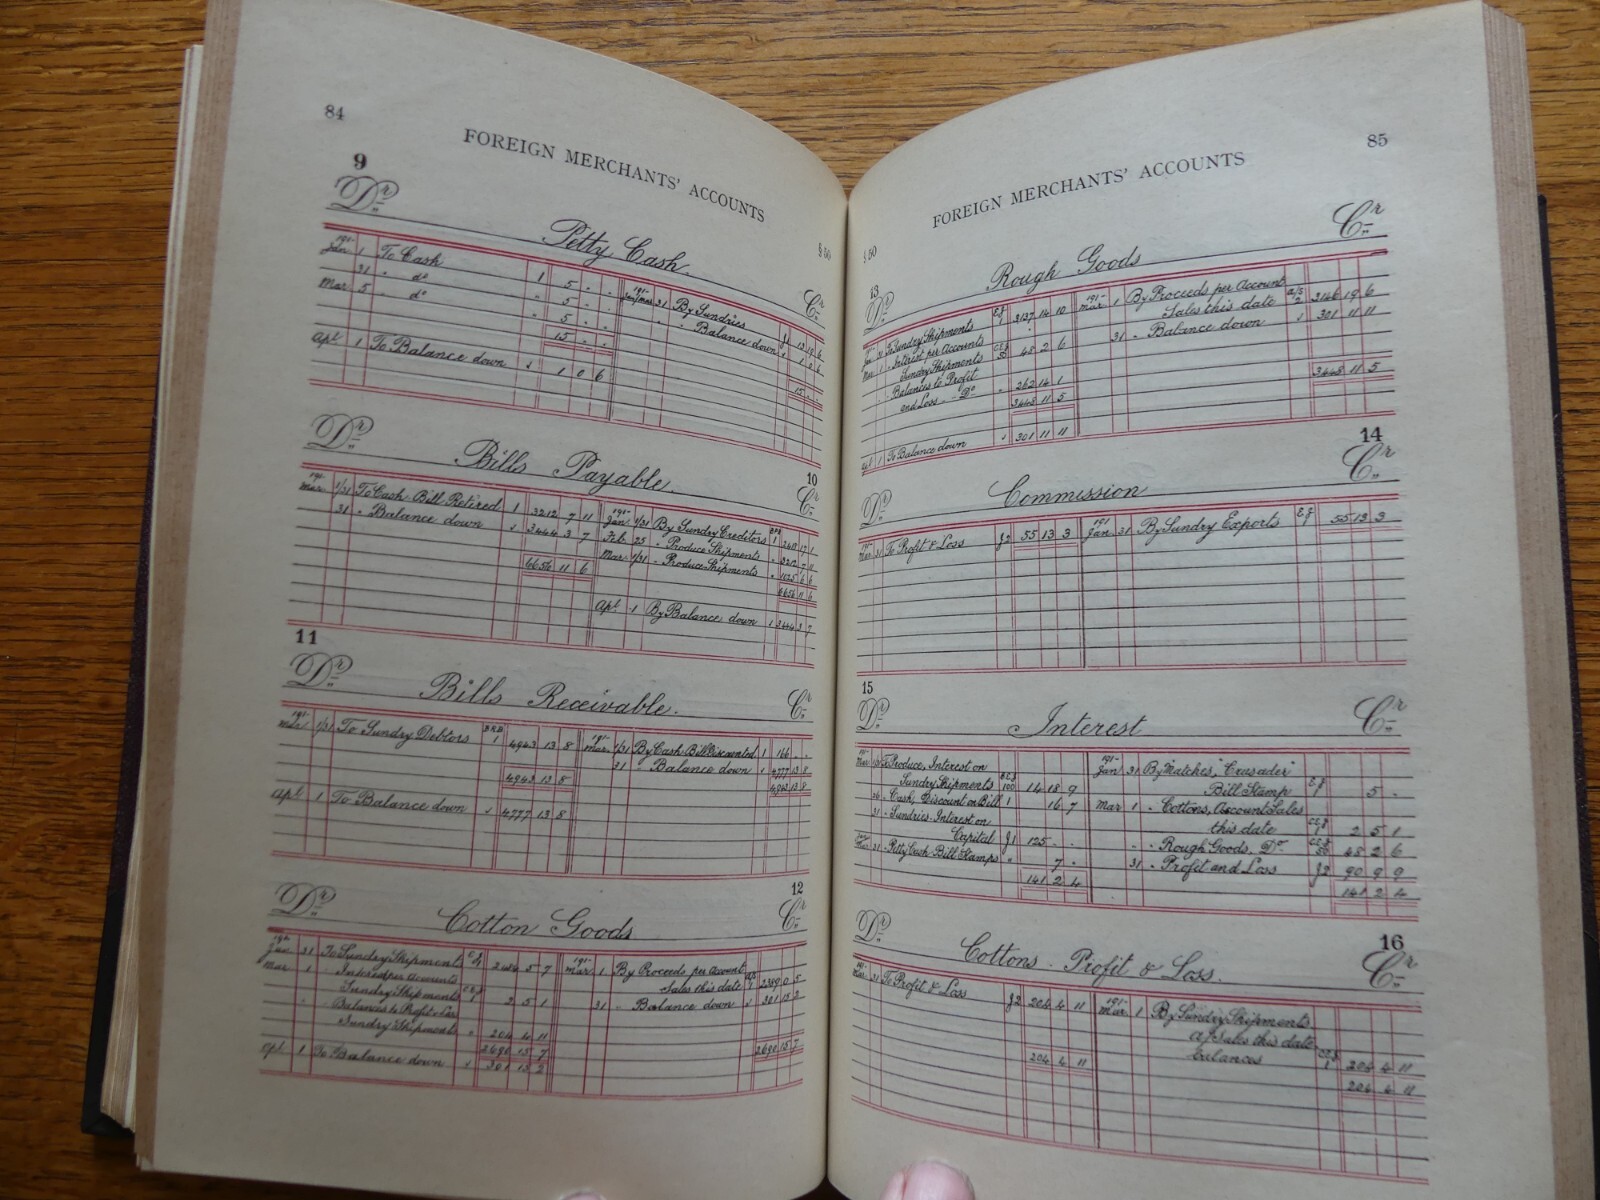 84
FOREIGN MERCHANTS' ACCOUNTS
§ 50
9
Dr
Petty Cash.
Cr
191-
Jan 1 To Cash 1 5 . .
31 " do " 5 . .
Mar 5 " do " 5 . .
15 . .
Apl 1 To Balance down ✓ 1 0 6
191-
31 By Sundries
" Balance down 1 0 6
15 . .
10
Dr
Bills Payable.
Cr
191-
Mar 1/31 To Cash Bill Retired 1 3212 7 11
31 " Balance down ✓ 3444 3 7
6656 11 6
191-
Jan 1/31 By Sundry Creditors
Feb 25 " Produce Shipments 3212 7 11
Mar 1/31 " Produce Shipments
6656 11 6
Apl 1 By Balance down 3444 3 7
11
Dr
Bills Receivable.
Cr
191-
Mar 1/31 To Sundry Debtors B.R.B 1 4943 13 8
4943 13 8
Apl 1 To Balance down ✓ 4777 13 8
191-
Mar 1/31 By Cash Bill Discounted 1 166 . .
31 " Balance down ✓ 4777 13 8
4943 13 8
12
Dr
Cotton Goods
Cr
191-
Jan 31 To Sundry Shipments 5 7
Mar 1 " Interest per Accounts
Sundry Shipments 2 5 1
" Balances to Profit & Loss
Sundry Shipments " 204 4 11
2690 15 7
Apl 1 To Balance down ✓ 301 15 2
191-
Mar 1 By Proceeds per Account
Sales this date 2389 0 5
31 " Balance down ✓ 301 15 2
2690 15 7
85
FOREIGN MERCHANTS' ACCOUNTS
§ 50
13
Dr
Rough Goods
Cr
31 To Sundry Shipments E.J 1 3137 14 10
Mar 1 " Interest per Accounts
Sundry Shipments 48 2 6
" Balances to Profit
and Loss " Do " 262 14 1
3448 11 5
Apl 1 To Balance down ✓ 301 11 11
191-
Mar 1 By Proceeds per Account
Sales this date a/s 2 3146 19 6
31 " Balance down ✓ 301 11 11
3448 11 5
14
Dr
Commission
Cr
191-
Mar 31 To Profit & Loss J2 55 13 3
191-
Jan 31 By Sundry Exports E.J 55 13 3
15
Dr
Interest
Cr
Mar To Produce, Interest on
Sundry Shipments 100 14 18 9
" Cash, Discount on Bill 1 16 7
31 " Sundries-Interest on
Capital J1 125 . .
31 " Petty Cash-Bill Stamps " 7 .
141 2 4
191-
Jan 31 By Matches, "Crusader"
Bill Stamp E.J 5 .
Mar 1 " Cottons, Account Sales
this date 2 5 1
" " Rough Goods, Do 48 2 6
31 " Profit and Loss J2 90 9 9
141 2 4
16
Dr
Cottons. Profit & Loss.
Cr
191-
Mar 31 To Profit & Loss J2 204 4 11
204 4 11
191-
Mar 1 By Sundry Shipments
a/sales this date
balances 204 4 11
204 4 11